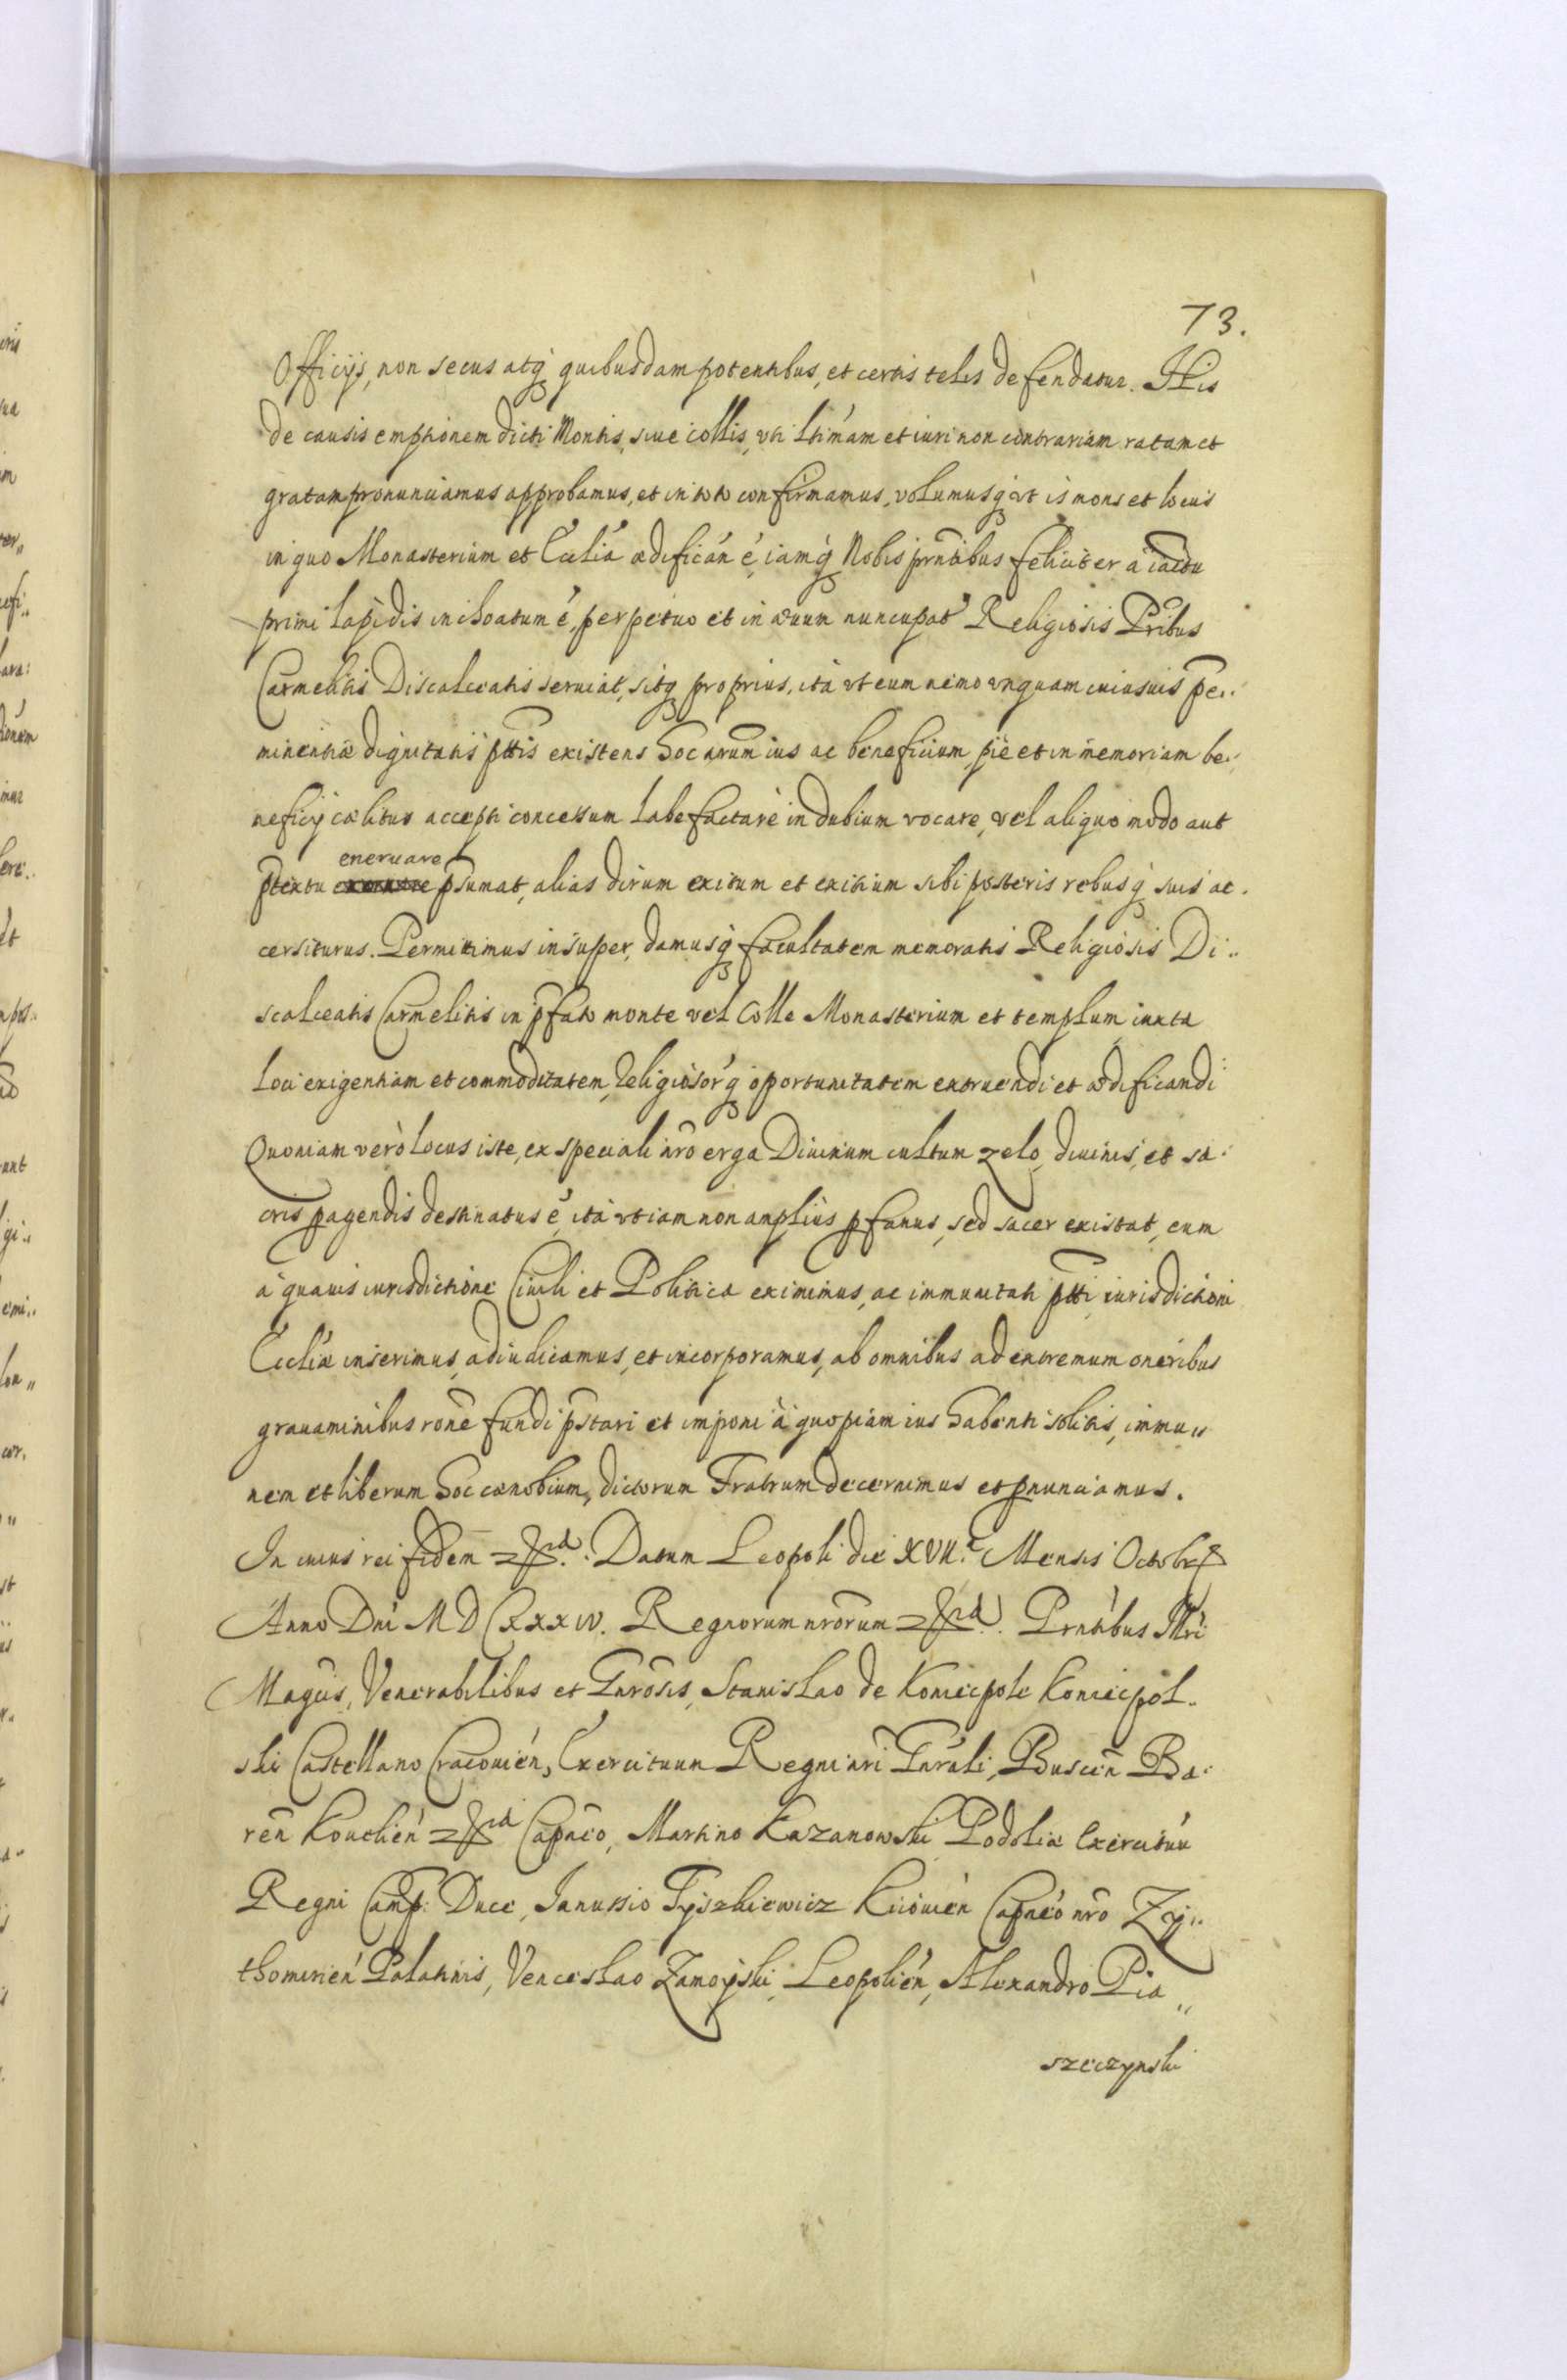 73.
Officijs, non secus atq́ quibusdam potentibus, et certis telis defendatur. His
de causis emptionem dicti Montis, siue collis, vti lt̃imam et iuri non contrariam ratam et
gratam pronunciamus approbamus, et in toto confirmamus, volumusq́ vt is mons et locus
in quo Monasterium et Ecclĩa ædificañ ẽ, iamq́ Nobis prñtibus feliciter à iactu
primi lapidis inchoatum ẽ, perpetuo et in æuum nuncupat̃ Religiosis Pr̃ibus
Carmelitis Discalceatis seruiat, sitq́ proprius, ità vt eum nemo vnquam cuiusuis p̃e..
minentiæ dignitatis p̃ttis existens hoc arum ius ac beneficium, piè et in memoriam be..
neficij cælitus accepti concessum labefactare in dubium vocare, vel aliquo modo aut
p̃textu eneruare p̃sumat, alias dirum exitum et exitium sibi posteris rebusq́ suis ac.
cersiturus. Permittimus insuper, damusq́ facultatem memoratis Religiosis Di..
scalceatis Carmelitis in p̃fato monte vel Colle Monasterium et templum iuxta
loci exigentiam et commoditatem, Religiosor̃q́ oportunitatem extruendi et ædificandi
Quoniam verò locus iste, ex speciali nr̃o erga Diuinum cultum zelo, diuinis, et sa.
cris pagendis destinatus ẽ, ità vt iam non amplius pfanus, sed sacer existat, eum
à quauis iurisdictione Ciuili et Politica eximimus, ac immunitati p̃tti iurisdictioni
Ecclĩæ inserimus, adiudicamus, et incorporamus, ab omnibus ad extremum oneribus
grauaminibus rõne fundi p̃stari et imponi à quopiam ius habenti solitis, immu..
nem et liberum hoc cænobium, dictorum Fratrum decernimus et pnunciamus.
In cuius rei fidem Datum Leopoli die XVII. Mensis Octobr
Anno Dñi MDCXXXIV. Regnorum nr̃orum Prñtibus Ill̃ri
Magc̃is, Venerabilibus et Gnr̃osis, Stanislao de Koniecpole Koniecpol..
ski Castellano Cracouieñ, Exercituum Regni nr̃i Gnr̃ali, Busceñ Ba.
reñ Koueliéñ Capñeo, Martino Kazanowski Podoliæ Exercituũ
Regni Camp: Duce, Ianussio Tyszkiewicz Kiiouieñ Capñeo nr̃o Zy..
thomirieñ Palatinis, Venceslao Zamoyski, Leopolieñ, Alexandro Pia,,
szeczynski